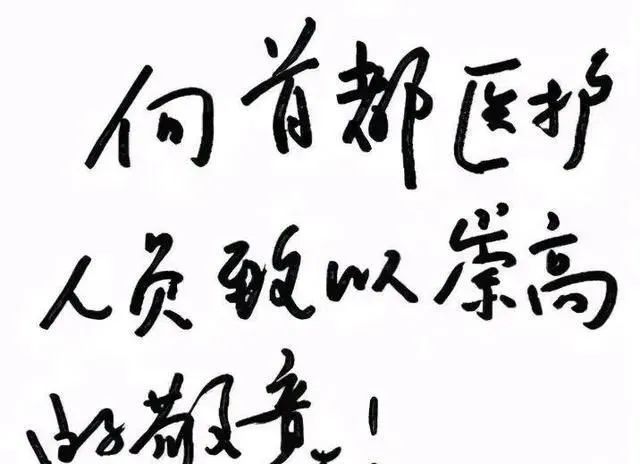 向首都医护
人员致以崇高
的敬意！